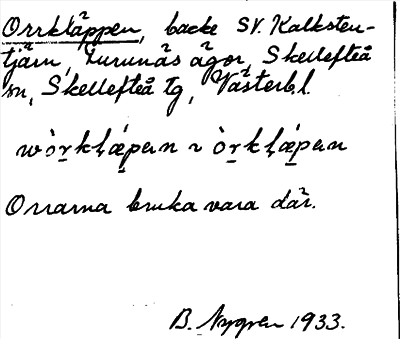 Orrkläppen, backe SV. Kalksten-
tjärn, Furunäs ägor, Skellefteå
sn, Skellefteå tg, Västerb.l.
wòr̯kḷǽpen ~ òr̯kḷǽpen
Orrarna bruka vara där.
B. Nygren 1933.